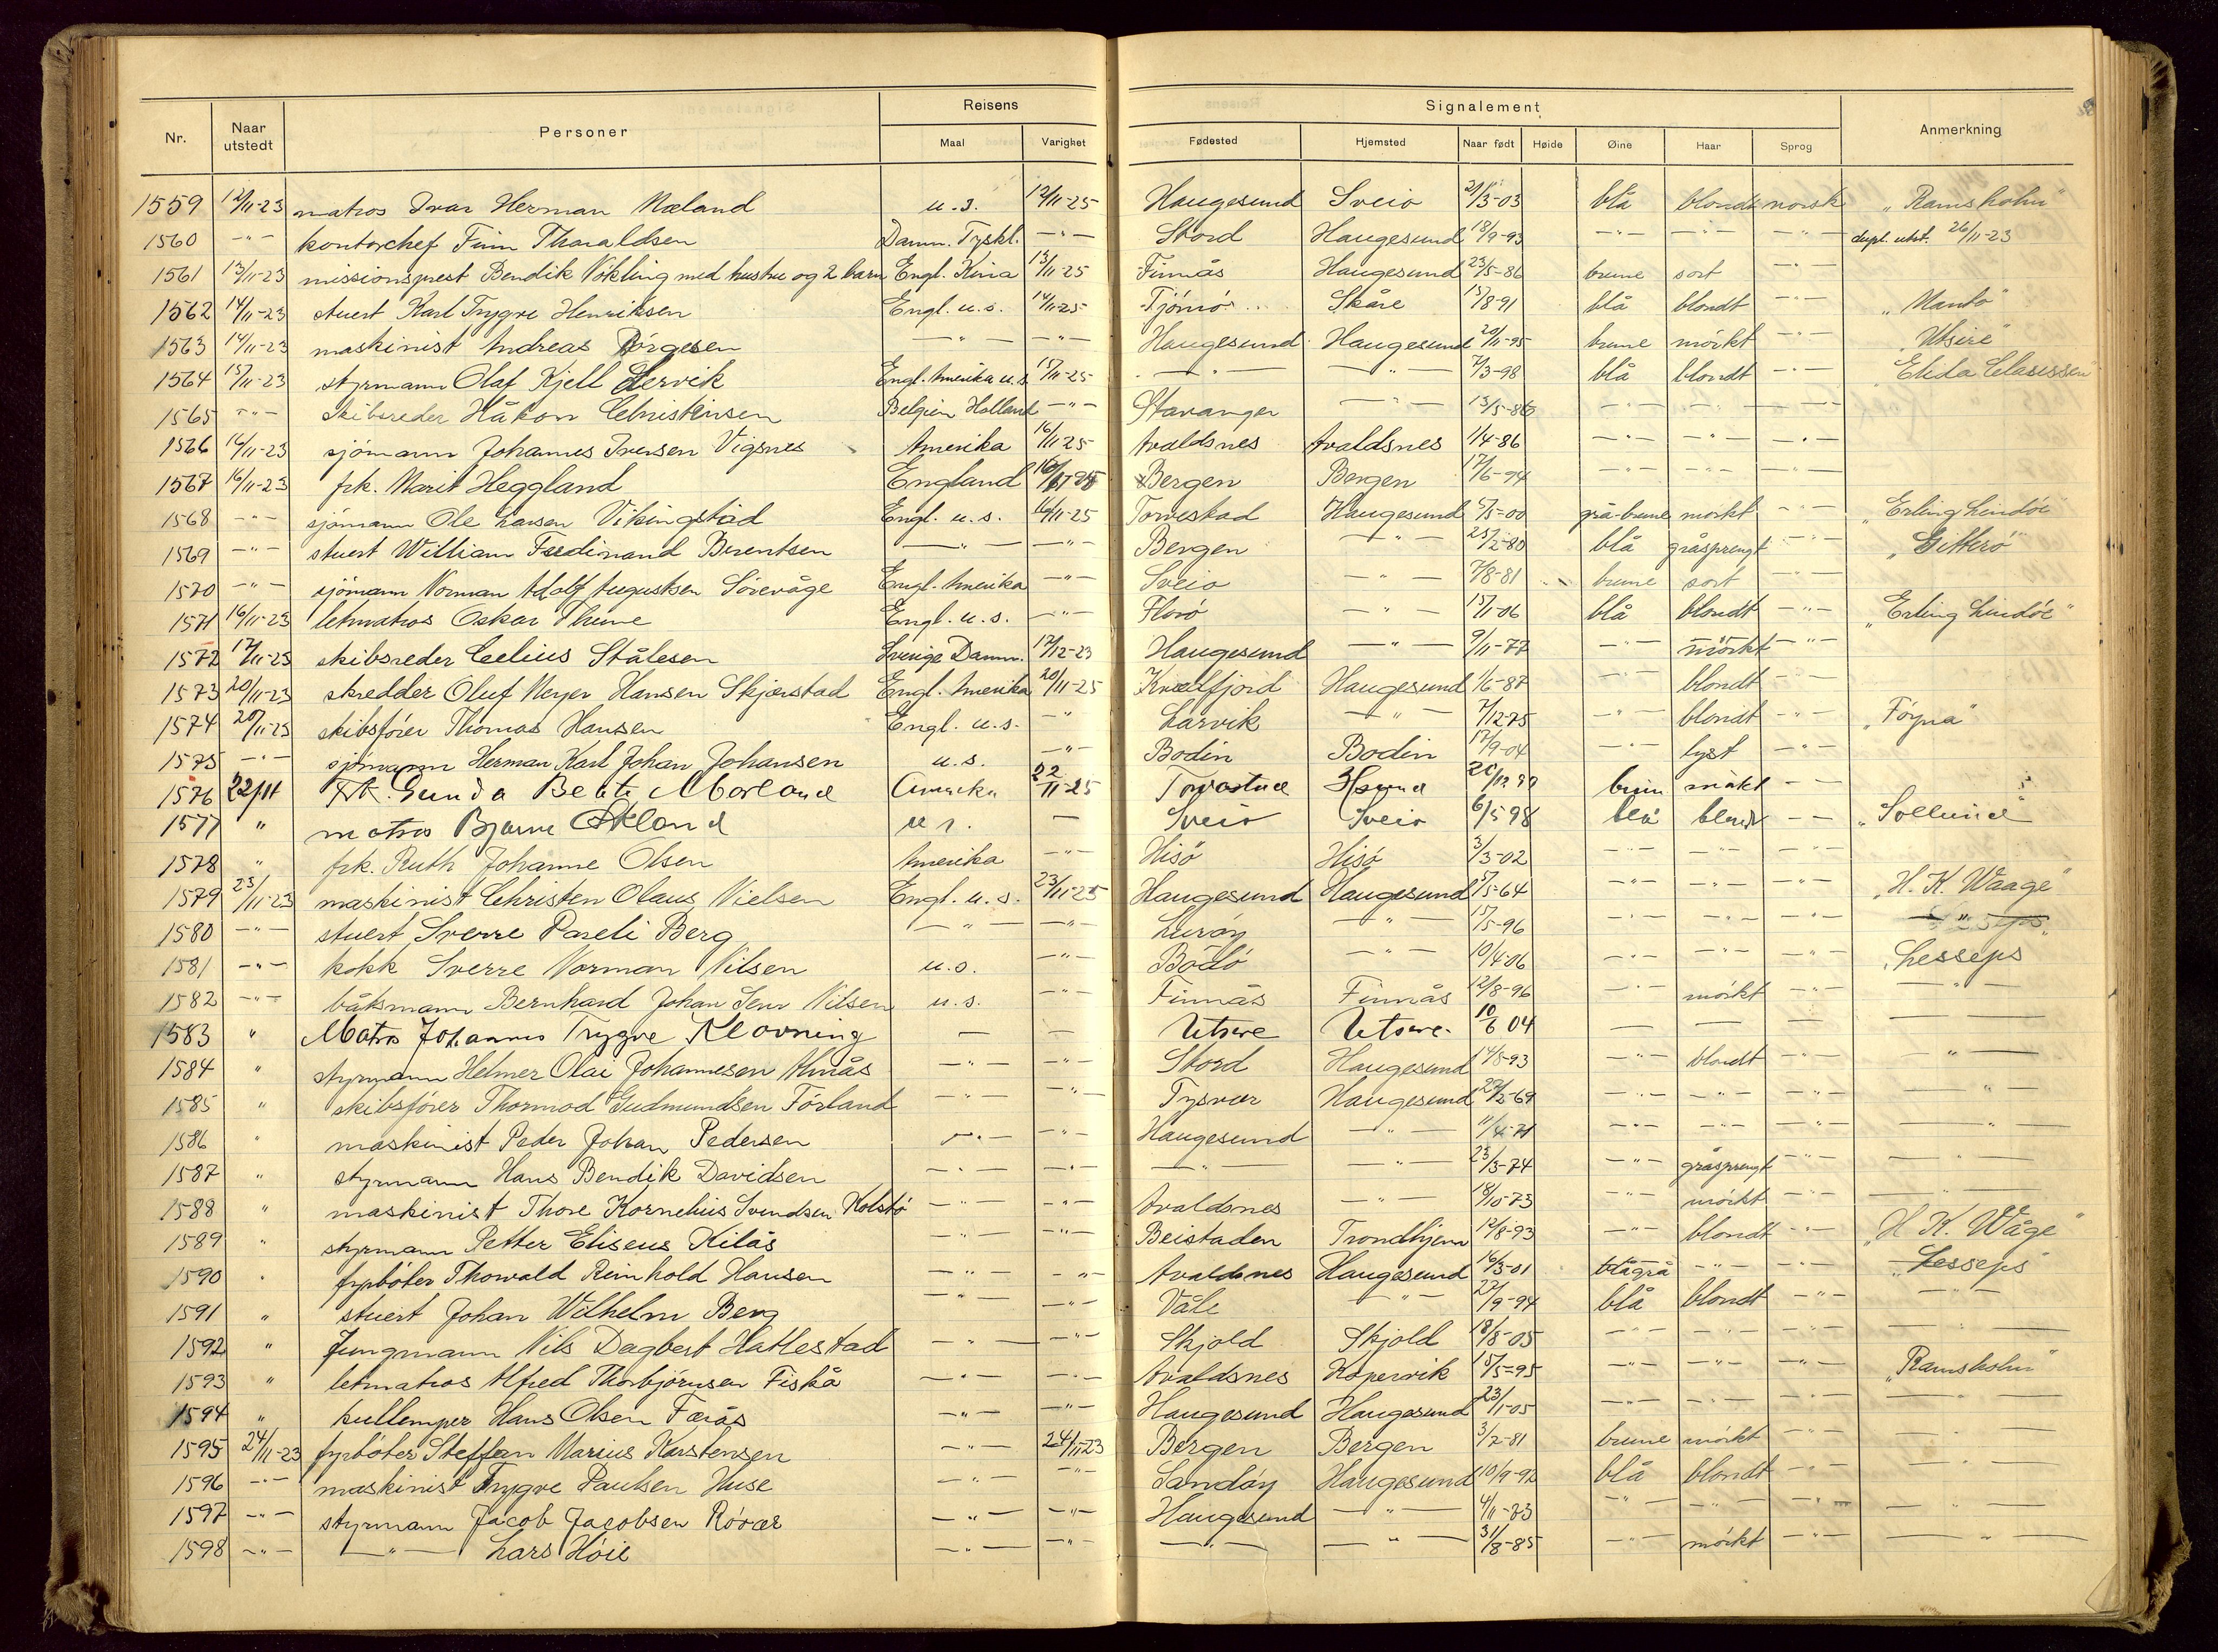 Nr. Naar utstedt Personer Reisens Maal Varighet Signalement Fødested Hjemsted Naar født Høide Øine Haar Sprog Anmerkning
1559 12/11-23 matros Ivar Herman Mæland u.s. 12/11-25 Haugesund Sveio 21/3-03 blå blondt norsk "Ramsholm"
1560 -"- kontorchef Finn Tharaldsen Danm. Tyskl. -"- Stord Haugesund 18/9-93 -"- -"- -"- dupl. utst. 26/11-23
1561 13/11-23 missionsprest Bendik Vokling med hustru og 2 barn Engl. Kina 13/11-25 Finnås Haugesund 23/5-86 brune sort -"-
1562 14/11-23 stuert Karl Trygve Henriksen Engl. u.s. 14/11-25 Tjömö Skåre 15/8-91 blå blondt -"- "Manto"
1563 14/11-23 maskinist Andreas Börgesen -"- -"- Haugesund Haugesund 20/11-95 brune mörkt -"- "Utsire"
1564 15/11-23 styrmann Olaf Kjell Lervik Engl. Amerika u.s. 15/11-25 -"- -"- 7/3-98 blå blondt -"- "Elida Clausen"
1565 -"- skibsreder Håkon Christensen Belgien Holland -"- Stavanger -"- 13/5-86 -"- -"- -"-
1566 16/11-23 sjömann Johannes Iversen Vigsnes Amerika 16/11-25 Avaldsnes Avaldsnes 1/4-86 -"- -"- -"-
1567 16/11-23 frk. Marit Heggland England 16/11-25 Bergen Bergen 17/6-94 -"- -"- -"-
1568 -"- sjömann Ole Larsen Vikingstad Engl. u.s. 16/11-25 Torvestad Haugesund 5/5-00 grå-brune mörkt -"- "Erling Lindöe"
1569 -"- stuert William Ferdinand Berentsen -"- -"- Bergen -"- 25/2-80 blå gråsprengt -"- "Gitterö"
1570 -"- sjömann Norman Adolf Augustsen Sörevåge Engl. Amerika -"- Sveio -"- 7/8-81 brune sort -"-
1571 16/11-23 letmatros Oskar Thune Engl. u.s. -"- Florö -"- 15/1-06 blå blondt -"- "Erling Lindöe"
1572 17/11-23 skibsreder Celius Stålesen Sverige Danm. 17/12-23 Haugesund -"- 9/11-77 -"- mörkt -"-
1573 20/11-23 skredder Oluf Meyer Hansen Skjerstad Engl. Amerika 20/11-25 Kvælfjord Haugesund 1/6-87 blondt -"-
1574 20/11-23 skibsförer Thomas Hansen Engl. u.s. -"- Larvik -"- 7/12-75 -"- blondt -"- "Föyna"
1575 -"- sjömann Herman Karl Johan Johansen u.s. -"- Bodin Bodin 17/9-04 -"- lyst -"-
1576 22/11 Frk. Gunda Beate Morland Amerika 22/11-25 Torvastad Hsund brun mörkt -
1577 " matros Bjarne Økland u s. - Sveio Sveio 6/5 98 blå blondt - - "Sollund"
1578 " frk. Ruth Johanne Olsen Amerika -"- Hisö Hisö 3/3-02 -"- -"- -"-
1579 23/11-23 maskinist Christen Olaus Nielsen Engl. u.s. 23/11-25 Haugesund Haugesund 5/5-64 -"- -"- -"- "H. K. Waage"
1580 -"- stuert Sverre Pareli Berg -"- -"- Luröy -"- 15/5-96 -"- -"- -"- -"-
1581 -"- kokk Sverre Norman Nilsen u.s. -"- Bodö -"- 10/4-06 -"- -"- -"- "Lesseps
1582 -"- båtsmann Bernhard Johan Senr Nilsen u.s. -"- Finnås Finnås 12/8-96 -"- mörkt -"- -"-
1583 " Matros Johannes Trygve Klovning - - Utsire Utsire 10/6 04 - - - -
1584 " styrmann Helmer Olai Johannesen Almås -"- -"- Stord Haugesund 14/8-93 -"- blondt -"- -"-
1585 " skibsförer Thormod Gudmundsen Förland -"- -"- Tysvær Haugesund 22/2-69 -"- -"- -"- -"-
1586 " maskinist Peder Johan Pedersen -"- -"- Haugesund -"- 11/4-71 -"- -"- -"- -"-
1587 " styrmann Hans Bendik Davidsen -"- -"- -"- -"- 23/3-74 -"- gråsprengt -"- -"-
1588 " maskinist Thore Kornelius Svendsen Kolstö -"- -"- Avaldsnes -"- 18/10-73 -"- mörkt -"- -"-
1589 " styrmann Petter Eliseus Kilås -"- -"- Beistaden Trondhjem 12/8-93 -"- blondt -"- "H K. Våge"
1590 " fyrböter Thorvald Reinhold Hansen -"- -"- Avaldsnes Haugesund 16/3-01 blågrå -"- -"- "Lesseps"
1591 " stuert Johan Wilhelm Berg -"- -"- Våle -"- 22/9-94 blå blondt -"- -"-
1592 " Jungmann Nils Dagbert Hatlestad -"- -"- Skjold Skjold 18/8-05 -"- -"- -"- -"-
1593 " letmatros Alfred Thorbjörnsen Fiskå -"- -"- Avaldsnes Kopervik 15/5-95 -"- -"- -"- "Ramsholm"
1594 " kullemper Hans Olsen Færås -"- -"- Haugesund Haugesund 23/1-05 -"- -"- -"- -"-
1595 24/11-23 fyrböter Steffen Marius Karstensen -"- 24/11-23 Bergen Bergen 3/2-81 brune mörkt -"- -"-
1596 -"- maskinist Trygve Paulsen Huse -"- -"- Sandöy Haugesund 10/9-92 blå blondt -"- -"-
1597 -"- styrmann Jacob Jacobsen Rövær -"- -"- Haugesund -"- 4/11-83 -"- -"- -"- -"-
1598 -"- -"- Lars Höie -"- -"- -"- -"- 31/8-85 -"- mörkt -"- -"-